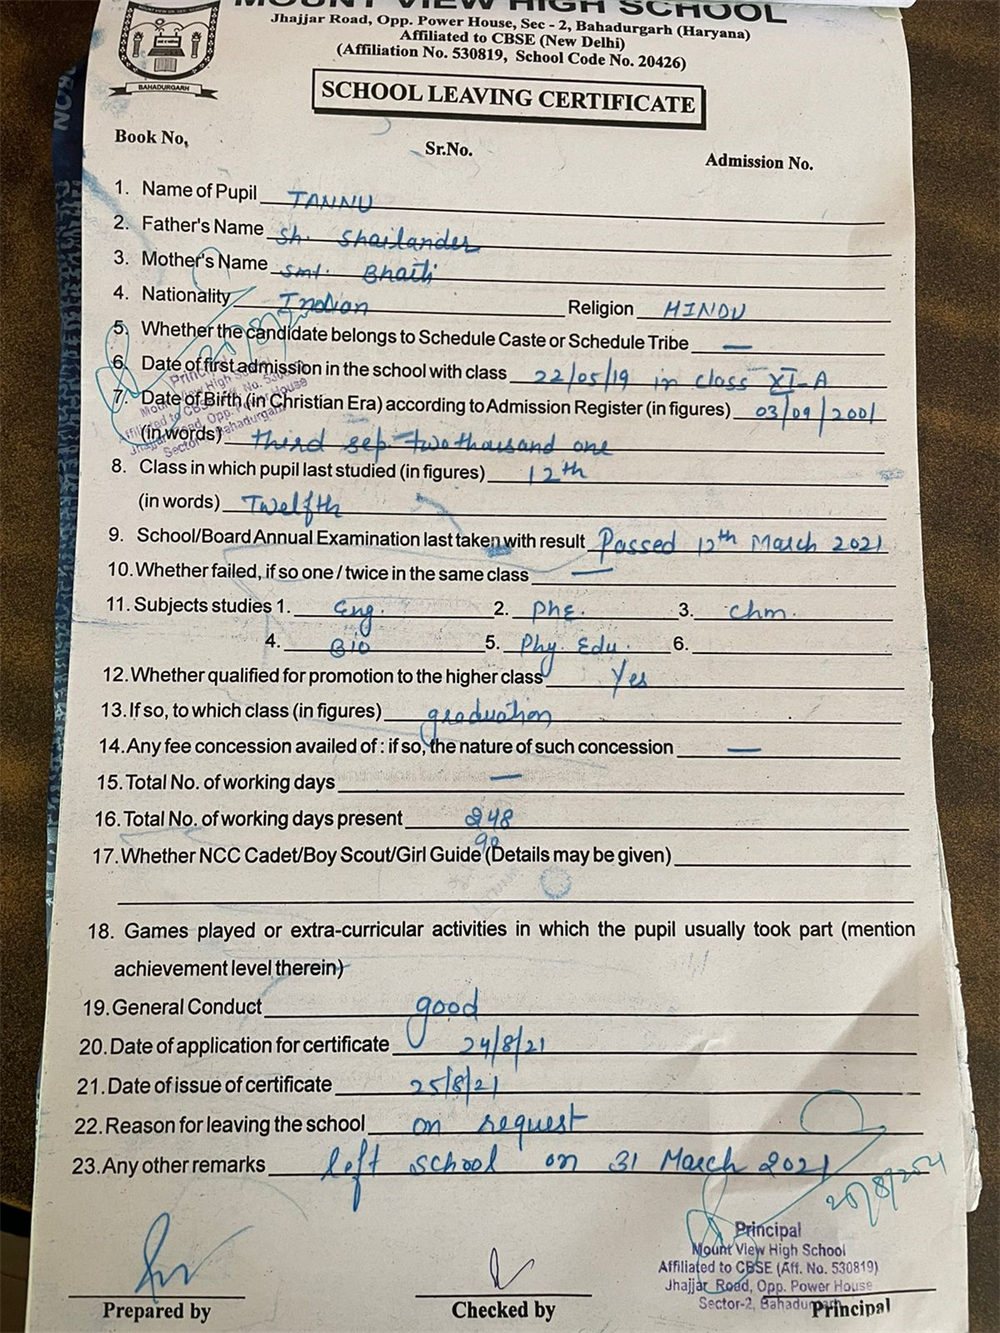 MOUNT VIEW HIGH SCHOOL
Jhajjar Road, Opp. Power House, Sec - 2, Bahadurgarh (Haryana)
Affiliated to CBSE (New Delhi)
(Affiliation No. 530819, School Code No. 20426)
BAHADURGARH
SCHOOL LEAVING CERTIFICATE
Book No, Sr.No. Admission No.
1. Name of Pupil TANNU
2. Father's Name Sh. Shailander
3. Mother's Name Smt. Bhaiti
4. Nationality Indian Religion HINDU
5. Whether the candidate belongs to Schedule Caste or Schedule Tribe —
6. Date of first admission in the school with class 22/05/19 in class XI-A
7. Date of Birth (in Christian Era) according to Admission Register (in figures) 03/09/2001
(in words) third sep two thousand one
8. Class in which pupil last studied (in figures) 12th
(in words) Twelfth
9. School/Board Annual Examination last taken with result Passed 12th March 2021
10. Whether failed, if so one / twice in the same class —
11. Subjects studies 1. Eng. 2. Phe. 3. Chm.
4. Bio 5. Phy. Edu. 6.
12. Whether qualified for promotion to the higher class Yes
13. If so, to which class (in figures) graduation
14. Any fee concession availed of : if so, the nature of such concession —
15. Total No. of working days —
16. Total No. of working days present 248
90
17. Whether NCC Cadet/Boy Scout/Girl Guide (Details may be given)
18. Games played or extra-curricular activities in which the pupil usually took part (mention
achievement level therein)
19. General Conduct good
20. Date of application for certificate 24/8/21
21. Date of issue of certificate 25/8/21
22. Reason for leaving the school on request
23. Any other remarks left school on 31 March 2021
Principal
Mount View High School
Affiliated to CBSE (Aff. No. 530819)
Jhajjar Road, Opp. Power House
Sector-2, Bahadurgarh
Prepared by Checked by Principal